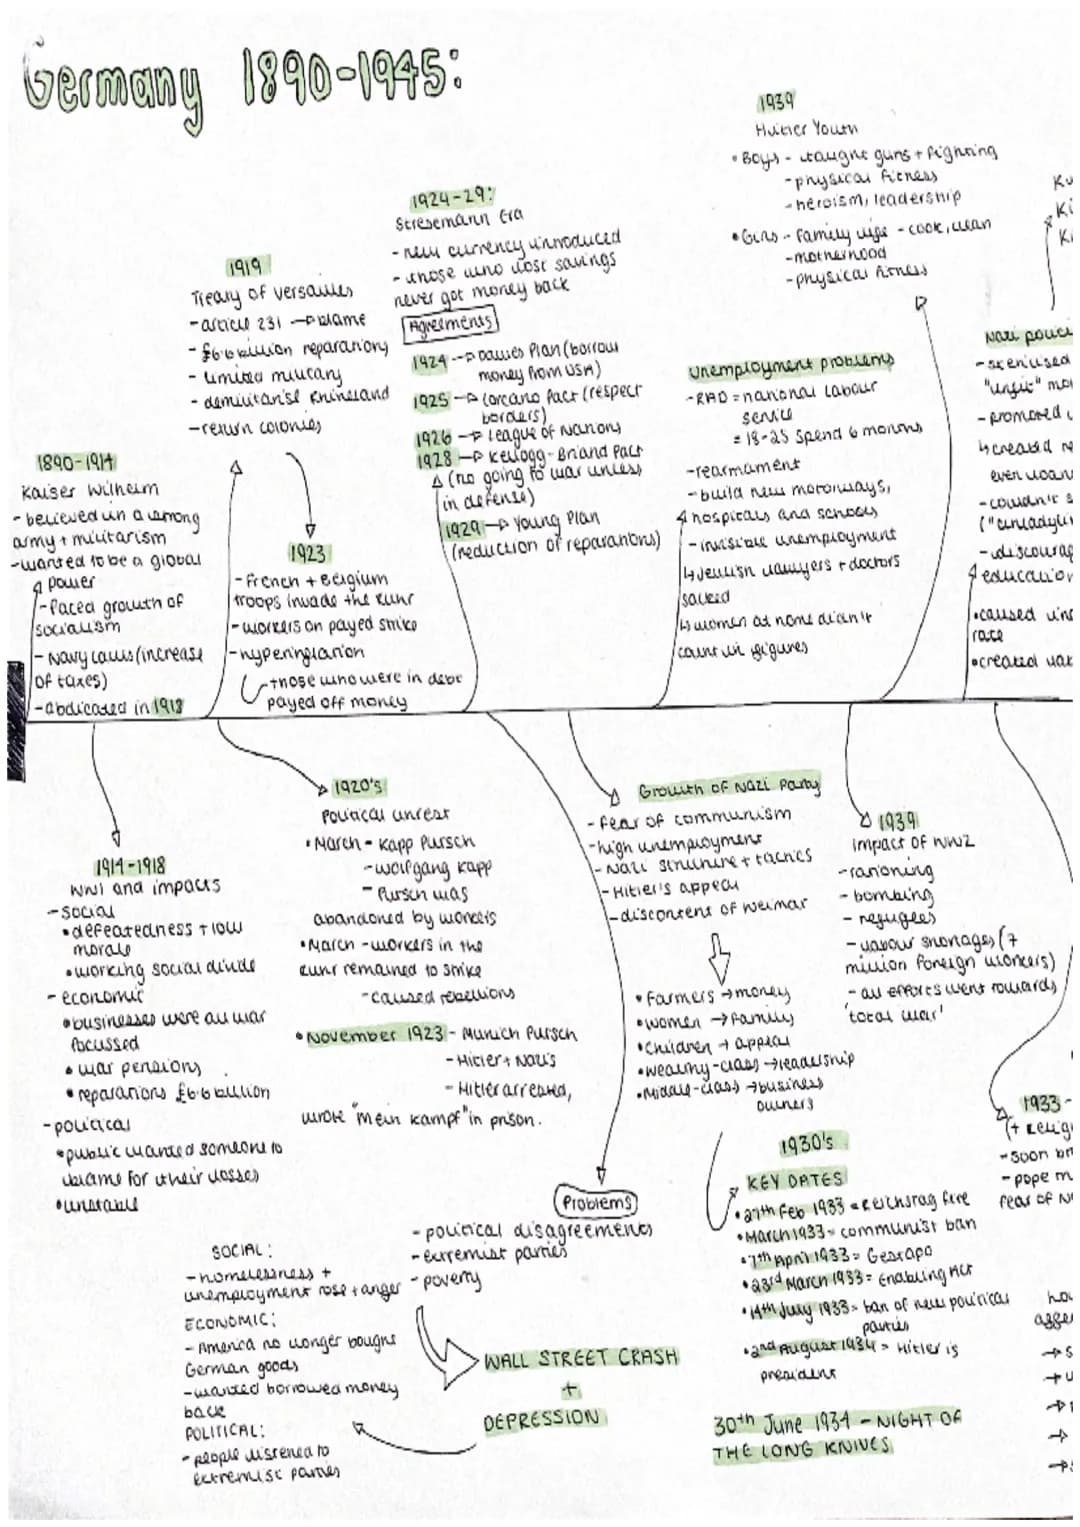 Germany 1890-1945:
1890-1914
Kaiser Wilhelm
- believed in a strong
army + militarism
- wanted to be a global
power
- faced growth of
socialism
- Navy Laws (increase
of taxes)
- abdicated in 1918
1919
Treaty of Versailles
- article 231 → blame
- £6.6 billion reparations
- limited military
- demilitarise Rhineland
- return colonies
1923
- French + Belgium
troops invade the Ruhr
- workers on payed strike
- hyperinflation
those who were in debt
payed off money
1924-29:
Stresemann Era
- new currency introduced
- those who lost savings
never got money back
Agreements
1924 → Dawes Plan (borrow
money from USA)
1925 → Locarno Pact (respect
borders)
1926 → League of Nations
1928 → Kellogg-Briand Pact
(no going to war unless
in defense)
1929 → Young Plan
(reduction of reparations)
Unemployment problems
- RAD = national labour
service
= 18-25 spend 6 months
- rearmament
- build new motorways,
hospitals and schools
- invisible unemployment
↳ Jewish lawyers + doctors
sacked
↳ women at home didn't
count in figures
1939
Hitler Youth
• Boys - taught guns + fighting
- physical fitness
- heroism, leadership
• Girls - family life - cook, clean
- motherhood
- physical fitness
Ki
Nazi polici
- sterilised
"unfit"
- promoted
↳ created
- couldn't s
- discourag
education
• caused
race
• created
1914-1918
WW1 and impacts
- social
• defeatedness + low
morale
• working social divide
- economic
• businesses were all war
focussed
• war pensions
• reparations £6.6 billion
- political
• public wanted someone to
blame for their losses
• unstable
1920's
Political unrest
• March - Kapp Putsch
- Wolfgang Kapp
- Putsch was
abandoned by workers
• March - workers in the
Ruhr remained to strike
- caused rebellions
• November 1923 - Munich Putsch
- Hitler + Nazi's
- Hitler arrested,
wrote "mein kampf" in prison.
Problems
- political disagreements
- extremist parties
- poverty
WALL STREET CRASH
+
DEPRESSION
SOCIAL:
- homelessness +
unemployment rose + anger
ECONOMIC:
- America no longer bought
German goods
- wanted borrowed money
back
POLITICAL:
- people listened to
extremist parties
Growth of Nazi Party
- fear of communism
- high unemployment
- Nazi structure + tactics
- Hitler's appeal
- discontent of weimar
• Farmers → money
• Women → family
• Children → appeal
• wealthy-class → leadership
• Middle-class → business
owners
1930's
KEY DATES
• 27th Feb 1933 = Reichstag fire
• March 1933 = communist ban
• 7th April 1933 = Gestapo
• 23rd March 1933 = Enabling Act
• 14th July 1933 = ban of new political
parties
• 2nd August 1934 = Hitler is
president
30th June 1934 - NIGHT OF
THE LONG KNIVES
1939
Impact of WW2
- rationing
- bombing
- refugees
- labour shortages (7
million foreign workers)
- all efforts went towards
'total war'
1933 -
(+ Relig
- soon br
- pope m
fear of N